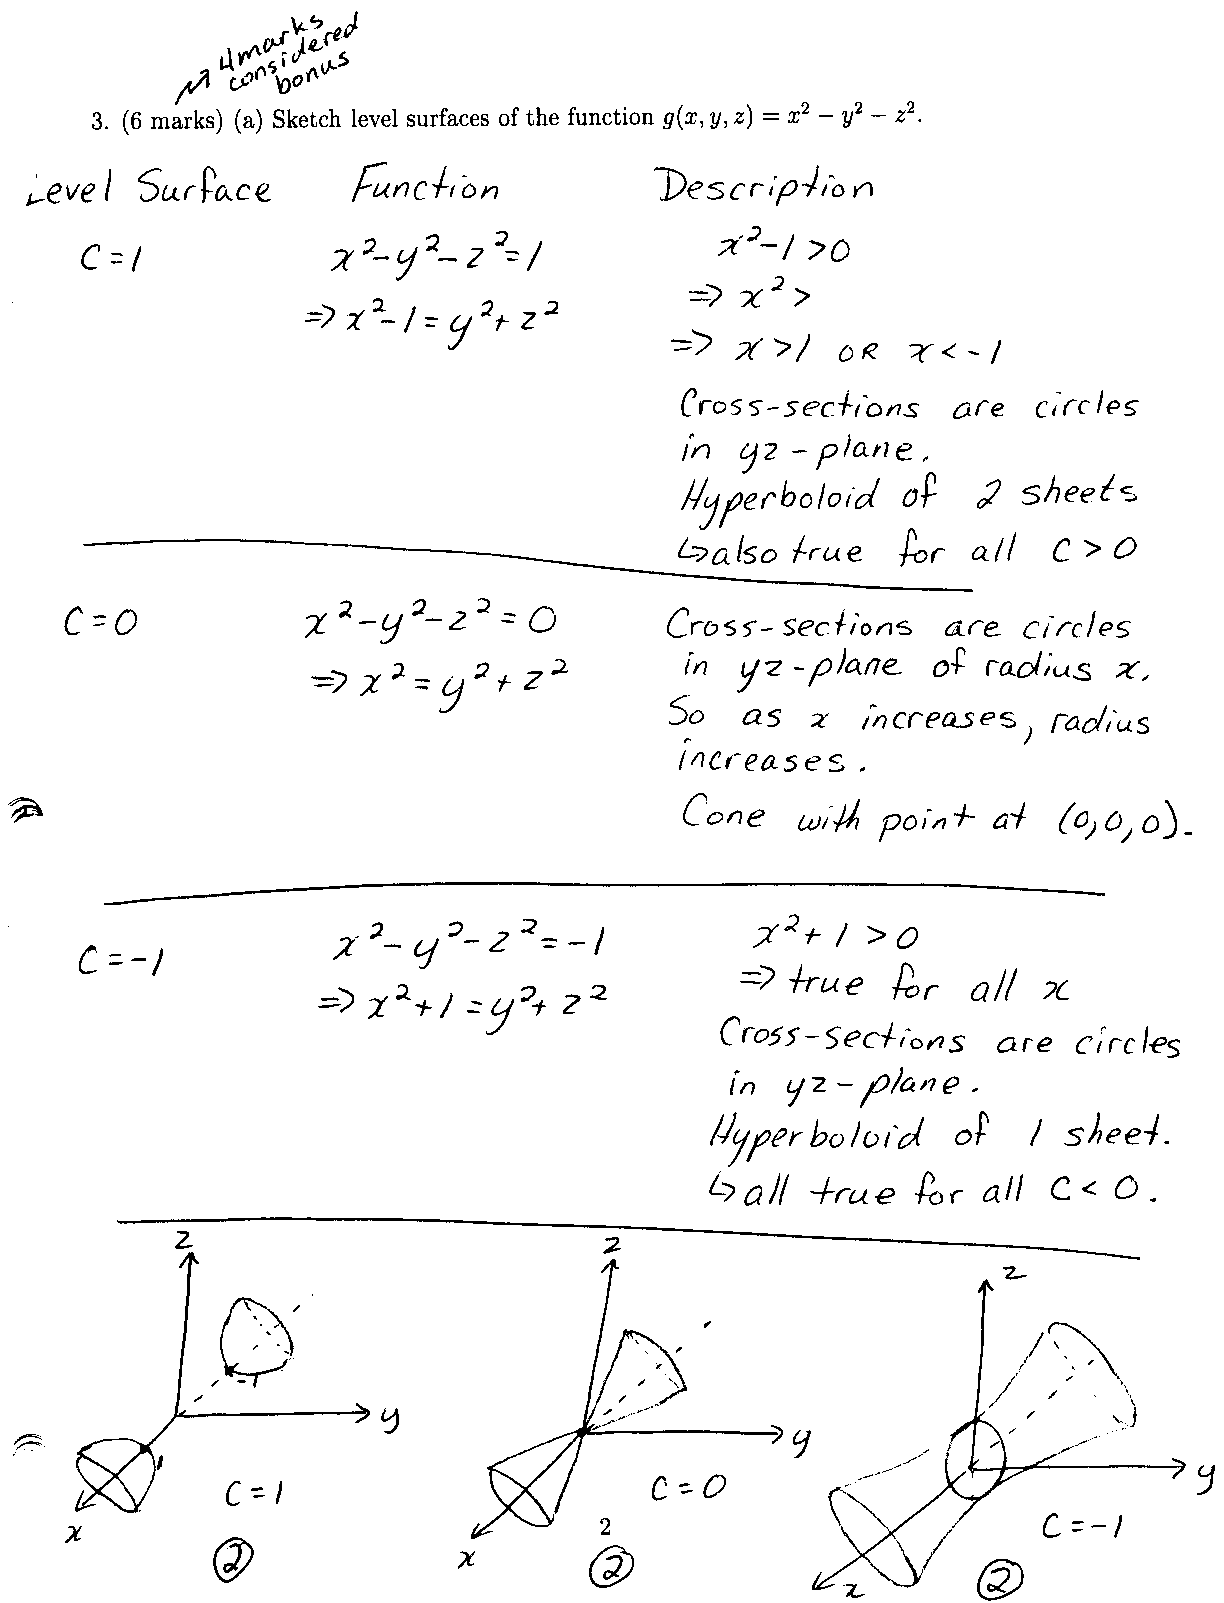 4 marks
considered
bonus
3. (6 marks) (a) Sketch level surfaces of the function g(x, y, z) = x² − y² − z².
Level Surface Function Description
C=1 x²-y²-z²=1 x²-1>0
⇒ x²-1=y²+z² ⇒ x²>
⇒ x>1 OR x<-1
Cross-sections are circles
in yz-plane.
Hyperboloid of 2 sheets
↳also true for all C>0
C=0 x²-y²-z²=0 Cross-sections are circles
⇒ x²=y²+z² in yz-plane of radius x.
So as x increases, radius
increases.
Cone with point at (0,0,0).
C=-1 x²-y²-z²=-1 x²+1>0
⇒ x²+1=y²+z² ⇒ true for all x
Cross-sections are circles
in yz-plane.
Hyperboloid of 1 sheet.
↳all true for all C<0.
z z z
-1
y y y
1
C=1 C=0 C=-1
x x x
2
② ② ②